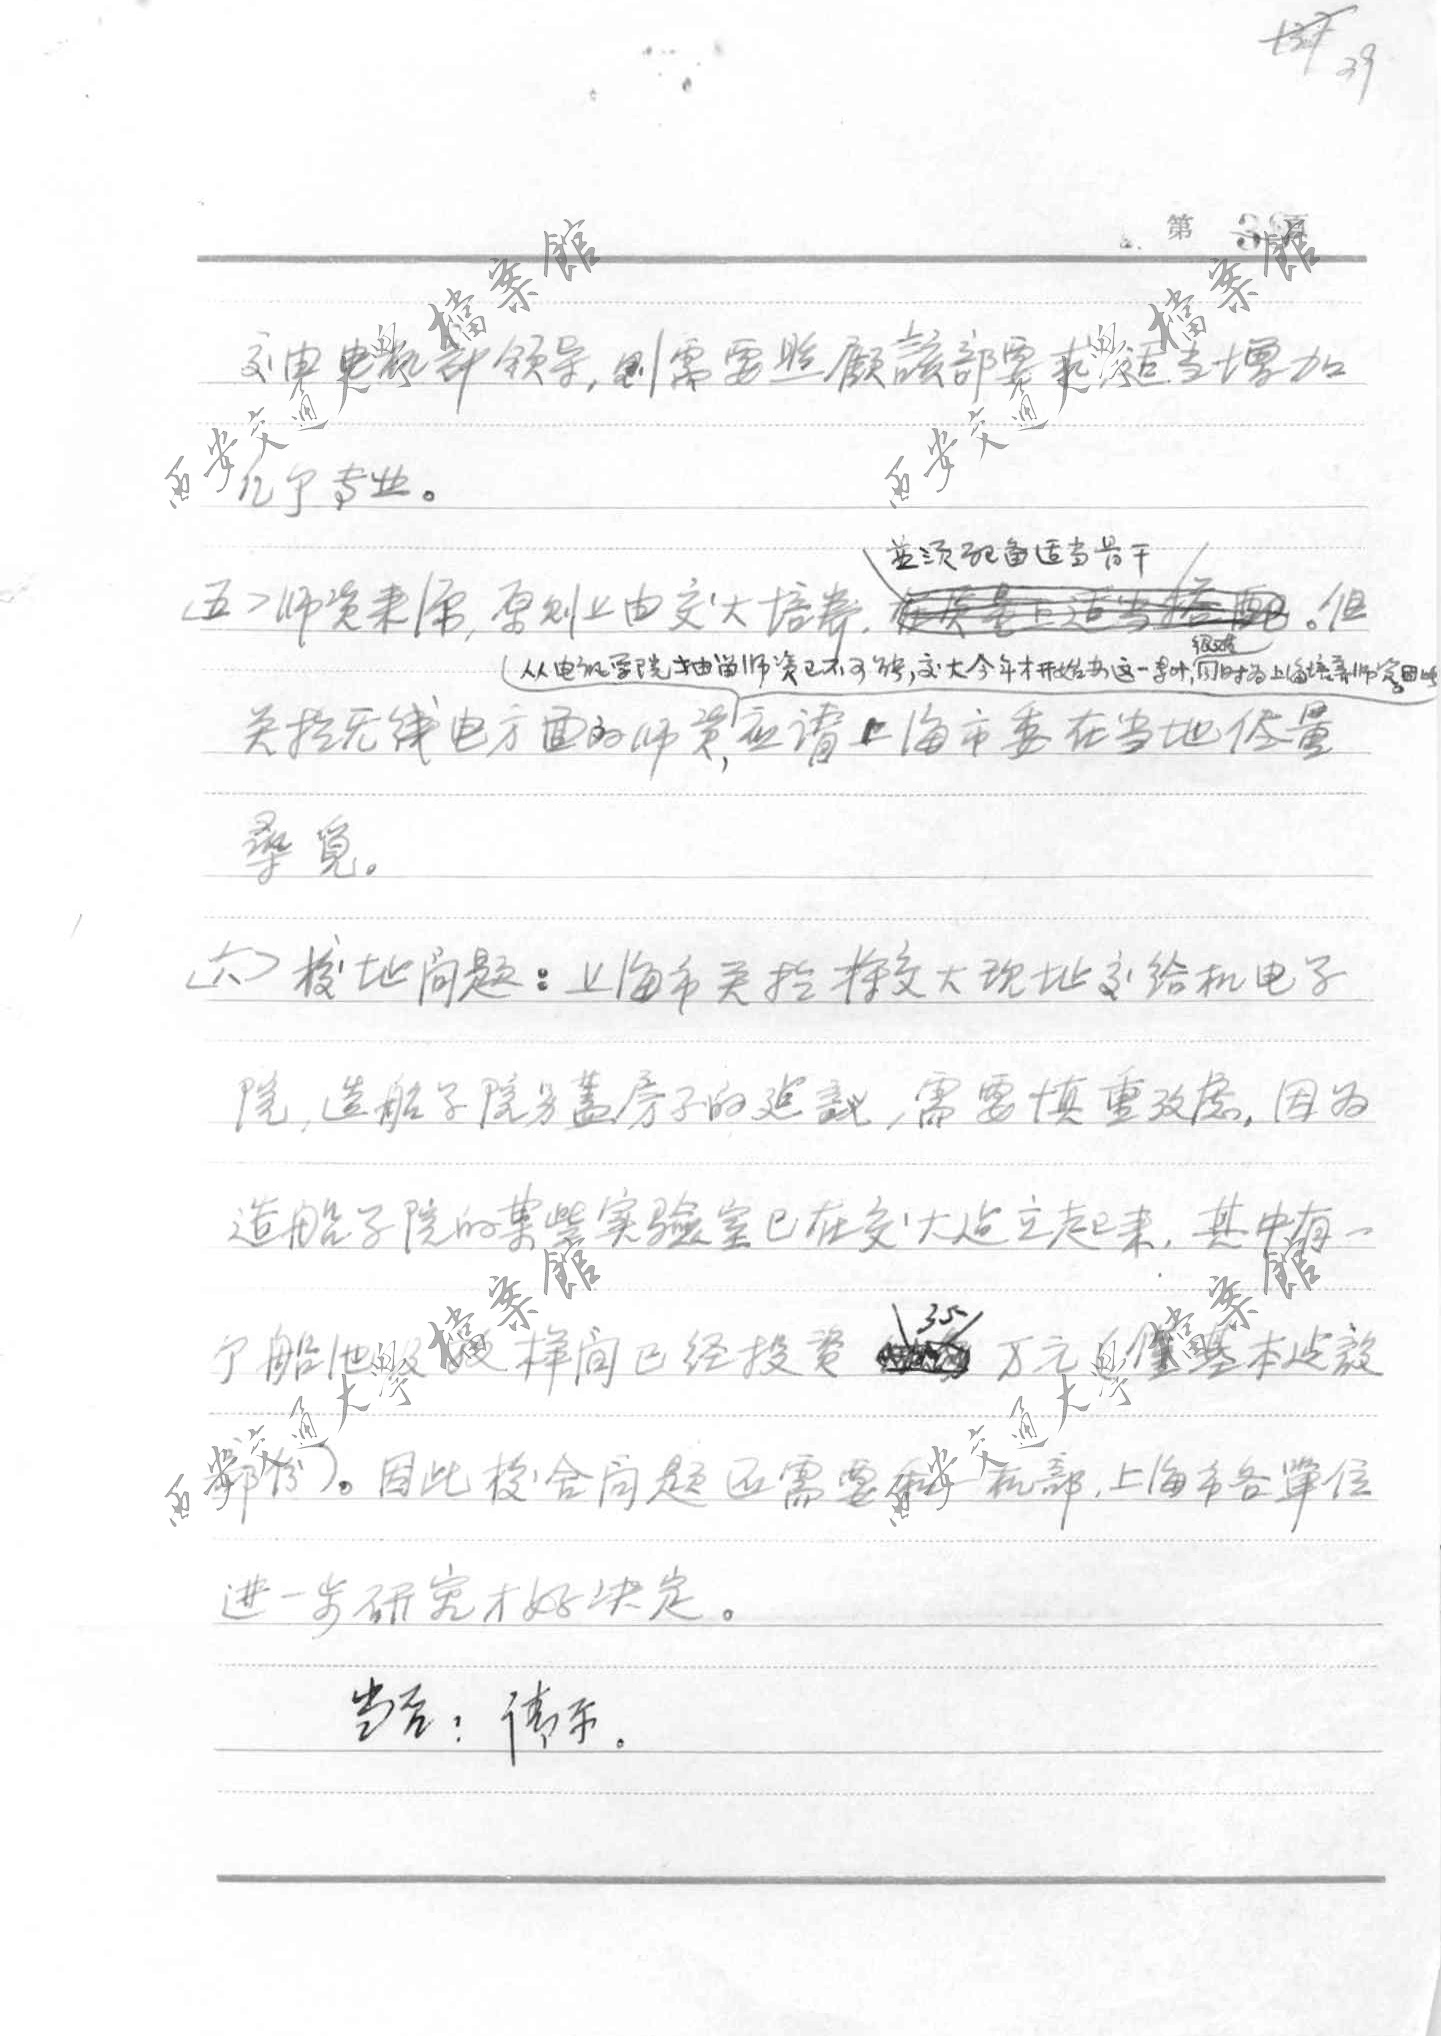 39
第 38 页
交由电机部领导,则需要照顾该部要求适当增加
几个专业。
并须配备适当骨干
(五)师资来源,原则上由交大培养,在质量上适当搭配。但
很难
从电讯学院抽留师资已不可能,交大今年才开始办这一专业,同时为上海培养师资因此
关于无线电方面的师资,应请上海市委在当地尽量
罗觅。
(六)校址问题:上海市关于将交大现址交给机电学
院,造船学院另盖房子的建议,需要慎重考虑,因为
造船学院的某些实验室已在交大建立起来,其中有一
个船池及放样间已经投资 35 万元(仅基本建设
部份)。因此校舍问题还需要和一机部,上海市各单位
进一步研究才好决定。
当否?请示。
西安交通大学档案馆
西安交通大学档案馆
西安交通大学档案馆
西安交通大学档案馆